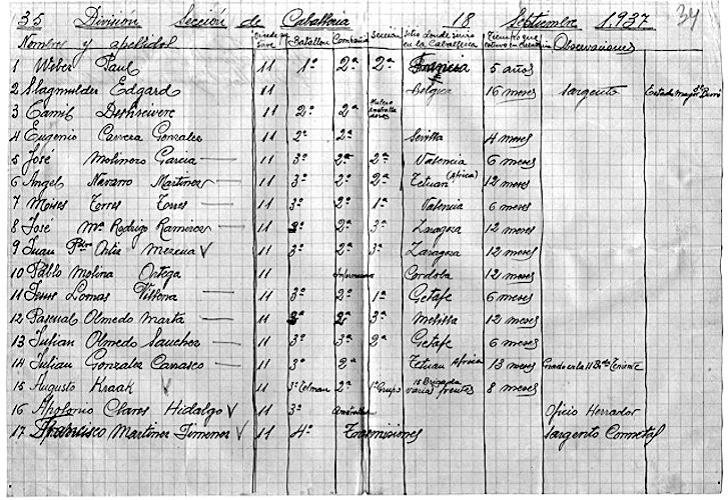 35 División Sección de Caballeria 18 Septiembre 1.937 34
Nombres y apellidos Brigada que Batallon Compañia Sección Sitio donde sirvio en la Caballeria Tiempo que estuvo en Observaciones
1 Weber Paul 11 1º 2ª 2ª Francia 5 años
2 Slagmulder Edgard 11 Belgica 16 meses Sargento Estado mayor
3 Camil Deshreivere 11 2º 2ª
4 Eugenio Carrera Gonzalez 11 2º 2ª Sevilla 4 meses
5 José Molinero Garcia 11 3º 2ª 2ª Valencia 6 meses
6 Angel Navarro Martinez 11 3º 2ª 2ª Tetuan (Africa) 12 meses
7 Moises Torres Torres 11 3º 2ª 1ª Valencia 6 meses
8 José Mª Rodrigo Ramirez 11 3º 2ª 3ª Zaragoza 12 meses
9 Juan Ortiz V 11 3º 2ª 3ª Zaragoza 12 meses
10 Pablo Molina Ortega 11 Cordoba 12 meses
11 Jesus Lomas Villona 11 3º 2ª 1ª Getafe 6 meses
12 Pascual Olmedo Marta 11 2ª 3ª Melilla 12 meses
13 Julian Olmedo Sanchez 11 3º 3ª 2ª Getafe 6 meses
14 Julian Gonzalez Carrasco 11 3º 2ª Tetuan Africa 13 meses Grado en la 11 Bda Teniente
15 Augusto Kraak V 11 3º 2ª 1º Grupo Brigada varios frentes 8 meses
16 Apolonio Clares Hidalgo V 11 3º Oficio Herrador
17 Francisco Martinez Jimenez V 11 4º Trasmisiones Sargento